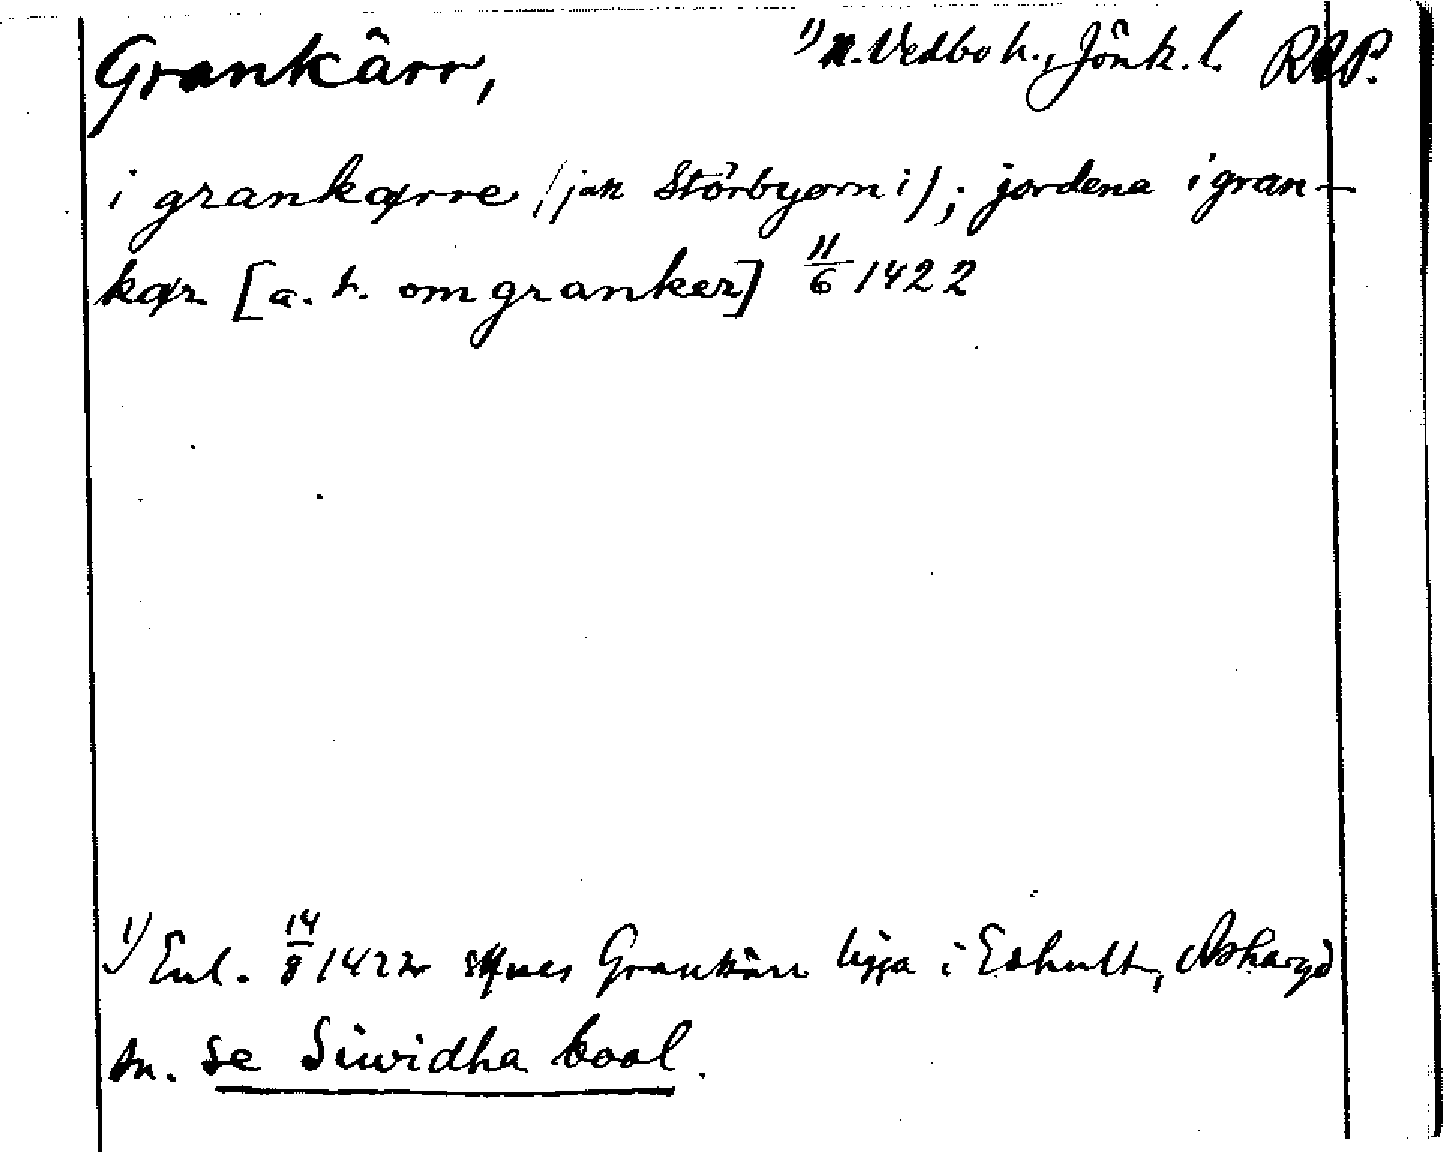 Grankärr, 1) N. Vedbo h., Jönk. l. RAP.
i grankærre (jak Störbyorn i); jordena i gran-
kær [a. t. om granker] 11/6 1422
1) Enl. 14/8 1422 synes Grankärr ligga i Eshult, Askeryd
sn. se Siwidha boal.